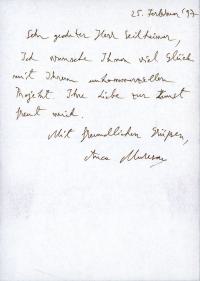 25. Februar '97
Sehr geehrter Herr Seilheimer,
Ich wünsche Ihnen viel Glück
mit Ihrem
Projekt. Ihre Liebe zur Kunst
freut mich.
Mit freundlichen Grüßen,